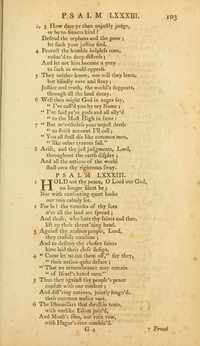 PSALM LXXXIII. 103
2, 3 How dare ye then unjustly judge,
or be to sinners kind?
Defend the orphans and the poor;
let such your justice find.
4 Protect the humble helpless man,
reduc'd to deep distress;
And let not him become a prey
to such as would oppress.
5 They neither know, nor will they learn,
but blindly rove and stray;
Justice and truth, the world's supports,
through all the land decay.
6 Well then might God in anger say,
"I've call'd you by my Name;
"I've said ye're gods and all ally'd
"to the Most High in fame:
7 "But nevertheless your unjust deeds
"to strict account I'll call;
"You all shall die like common men,
"like other tyrants fall."
8 Arise, and thy just judgments, Lord,
throughout the earth display;
And all the nations of the world
shall own thy righteous sway.
PSALM LXXXIII.
1 HOLD not thy peace, O Lord our God,
no longer silent be;
Nor with consenting quiet looks
our ruin calmly see.
2 For lo! the tumults of thy foes
o'er all the land are spread;
And those, who hate thy saints and thee,
lift up their threat'ning head.
3 Against thy zealous people, Lord,
they craftily combine;
And to destroy thy chosen saints
have laid their close design.
4 "Come let us cut them off," say they,
"their nation quite deface;
"That no remembrance may remain
"of Israel's hated race."
5 Thus they against thy people's peace
consult with one consent;
And diff'ring nations, jointly leagu'd,
their common malice vent.
6 The Ishmaelites that dwell in tents,
with warlike Edom join'd,
And Moab's sons, our ruin vow,
with Hagar's race combin'd.
G 4 7 Proud